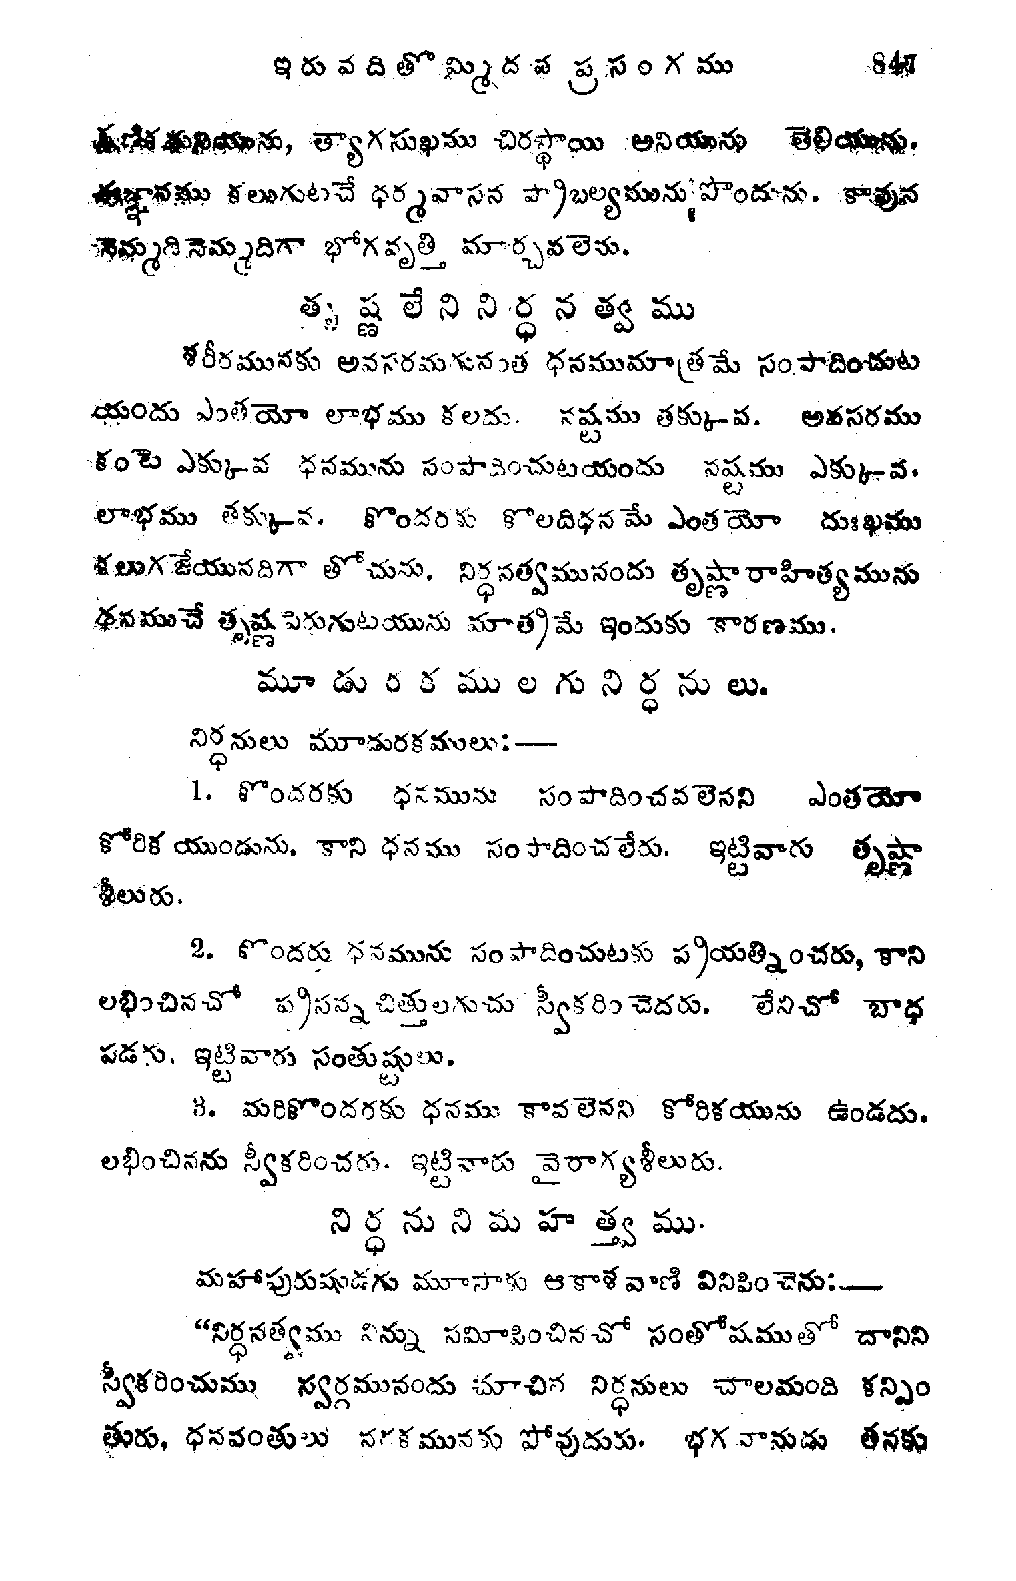 ఇరువదితొమ్మిదవ ప్రసంగము 847
క్షణికమనియును, త్యాగసుఖము చిరస్థాయి అనియును తెలియును.
ఈజ్ఞానము కలుగుటచే ధర్మవాసన ప్రాబల్యమును పొందును. కావున
నెమ్మదినెమ్మదిగా భోగవృత్తి మార్చవలెను.
తృష్ణలేని నిర్ధనత్వము
శరీరమునకు అవసరమగునంత ధనముమాత్రమే సంపాదించుట
యందు ఎంతయో లాభము కలదు. నష్టము తక్కువ. అవసరము
కంటె ఎక్కువ ధనమును సంపాదించుటయందు నష్టము ఎక్కువ.
లాభము తక్కువ. కొందరకు కొలదిధనమే ఎంతయో దుఃఖము
కలుగజేయునదిగా తోచును. నిర్ధనత్వమునందు తృష్ణారాహిత్యమును
ధనముచే తృష్ణ పెరుగుటయును మాత్రమే ఇందుకు కారణము.
మూడురకములగు నిర్ధనులు.
నిర్ధనులు మూడురకములు:—
1. కొందరకు ధనమును సంపాదించవలెనని ఎంతయో
కోరిక యుండును. కాని ధనము సంపాదించలేరు. ఇట్టివారు తృష్ణా
శీలురు.
2. కొందరు ధనమును సంపాదించుటకు ప్రయత్నించరు, కాని
లభించినచో ప్రసన్నచిత్తులగుచు స్వీకరించెదరు. లేనిచో బాధ
పడరు. ఇట్టివారు సంతుష్టులు.
3. మరికొందరకు ధనము కావలెనని కోరికయును ఉండదు.
లభించినను స్వీకరించరు. ఇట్టివారు వైరాగ్యశీలురు.
నిర్ధనుని మహత్త్వము.
మహాపురుషుడగు మూసాకు ఆకాశవాణి వినిపించెను:—
“నిర్ధనత్వము నిన్ను సమీపించినచో సంతోషముతో దానిని
స్వీకరించుము స్వర్గమునందు చూచిన నిర్ధనులు చాలమంది కన్పిం
తురు, ధనవంతులు నరకమునకు పోవుదురు. భగవానుడు తనకు